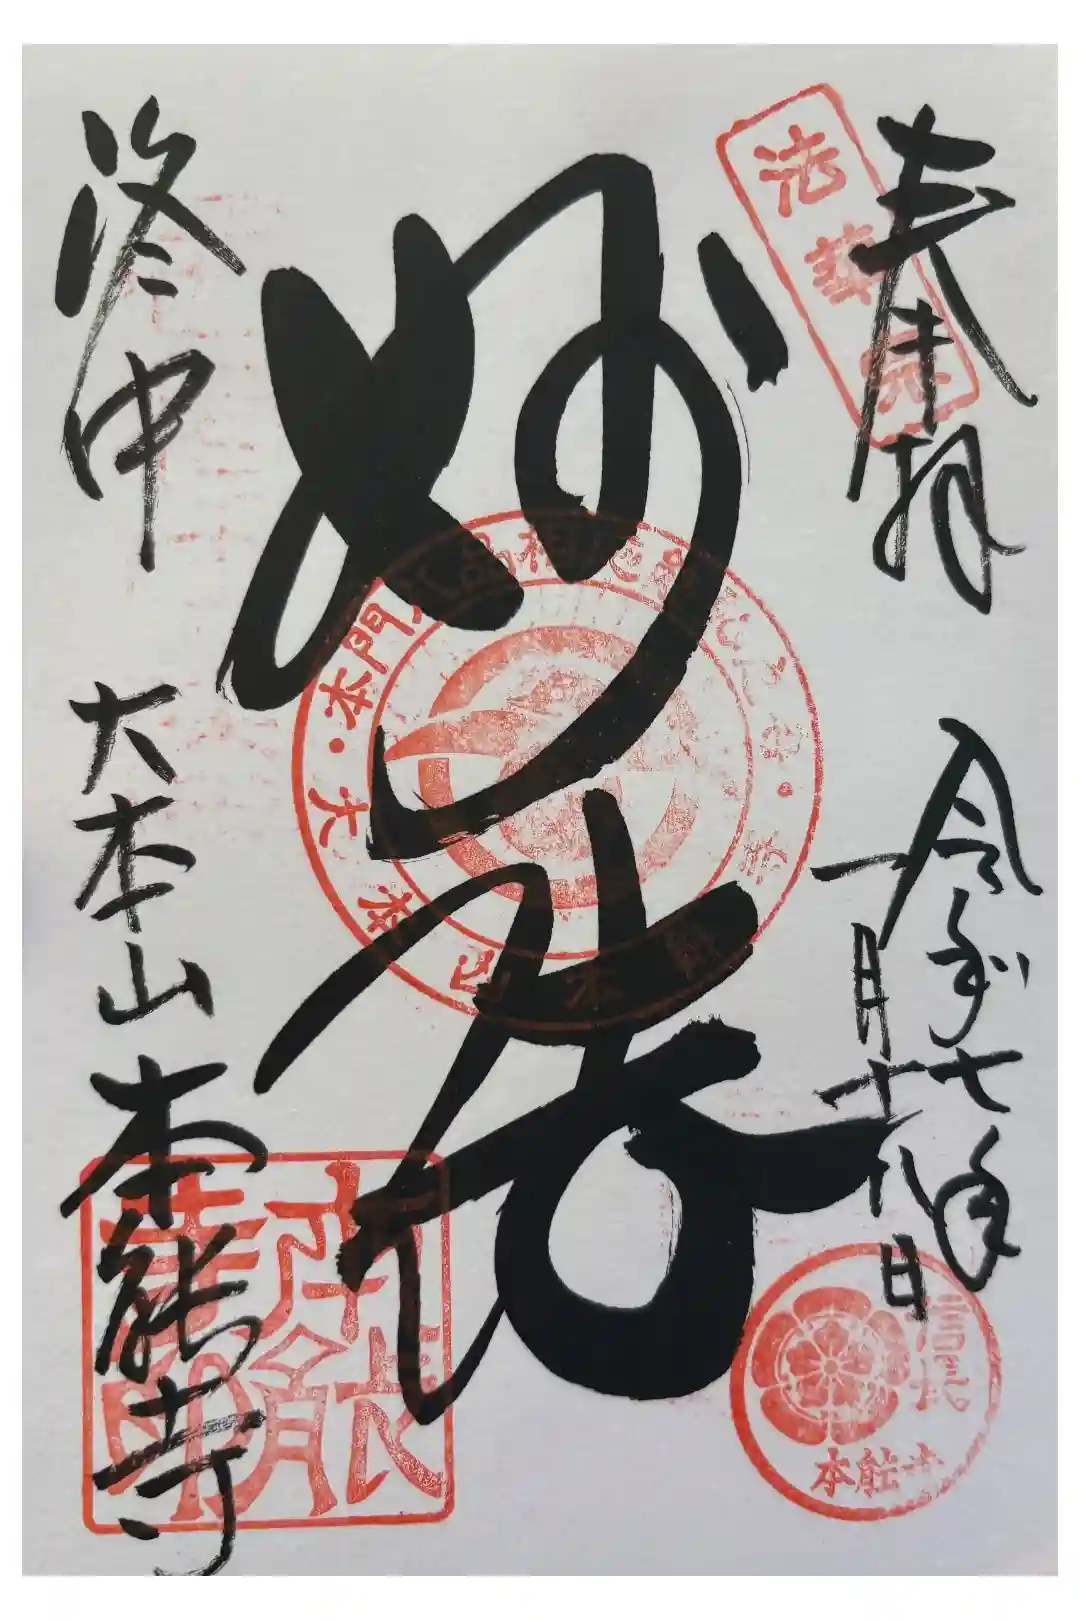 奉拝
法華宗
令和七年
一月十八日
妙法
洛中
大本山 本能寺
本能寺印
信長
本能寺